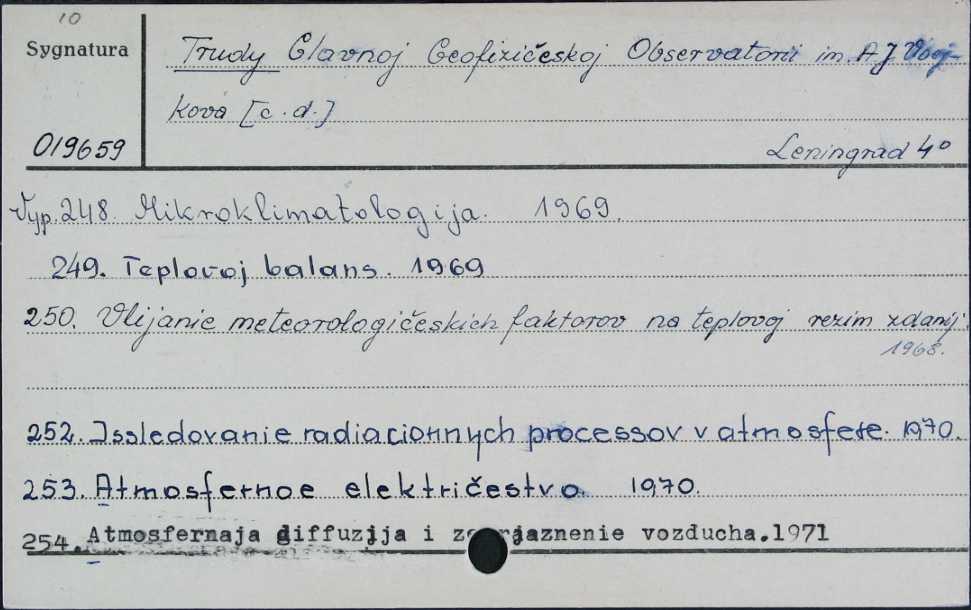 10
Sygnatura
Trudy Glavnoj Geofizičeskoj Observatorii im. A J Voej-
kova [c.d.]
019659
Leningrad 4°
Vyp. 248. Mikroklimatologija. 1969.
249. Teplovoj balans. 1969
250. Vlijanie meteorologičeskich faktorov na teplovoj režim zdanij.
1968.
252. Issledovanie radiacionnych processov v atmosfere. 1970.
253. Atmosfernoe električestvo. 1970.
254. Atmosfernaja diffuzija i vozducha.1971